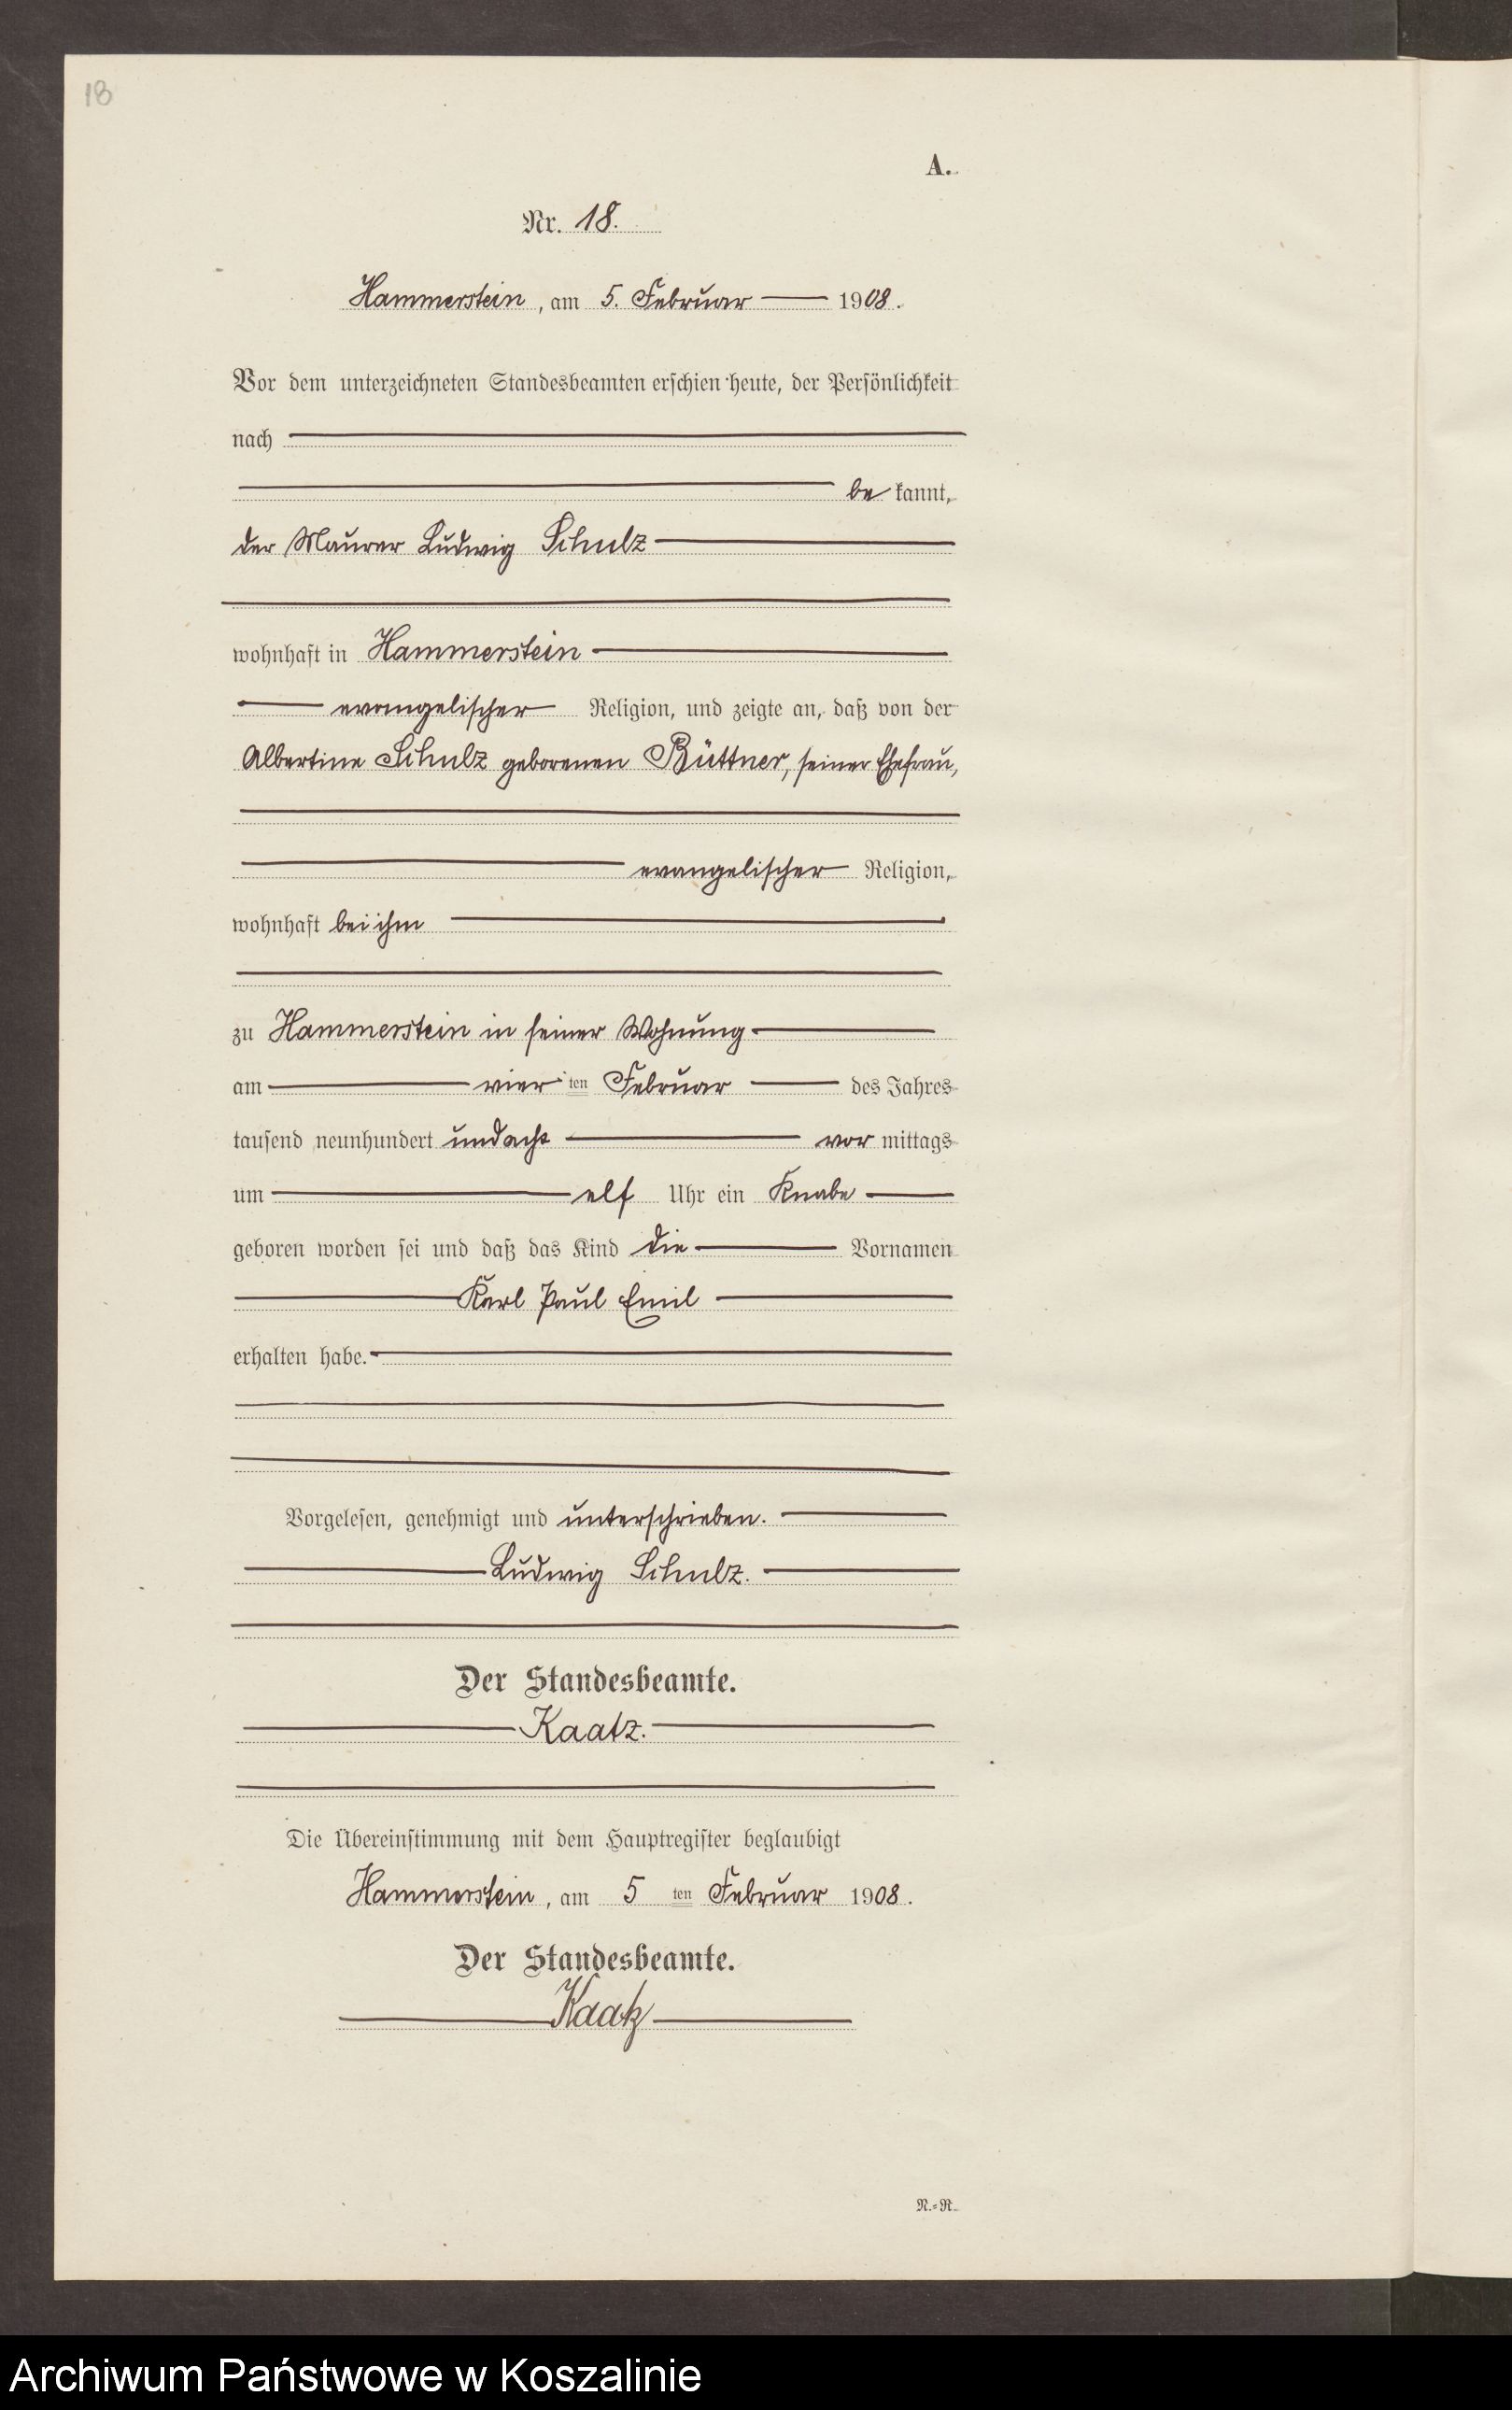 18
A.
Nr. 18.
Hammerstein, am 5. Februar 1908.
Vor dem unterzeichneten Standesbeamten erschien heute, der Persönlichkeit
nach
be kannt,
der Maurer Ludwig Schulz
wohnhaft in Hammerstein
evangelischer Religion, und zeigte an, daß von der
Albertine Schulz geborenen Büttner, seiner Ehefrau,
evangelischer Religion,
wohnhaft bei ihm
zu Hammerstein in seiner Wohnung
am vier ten Februar des Jahres
tausend neunhundert und acht vor mittags
um elf Uhr ein Knabe
geboren worden sei und daß das Kind die Vornamen
Karl Paul Emil
erhalten habe.
Vorgelesen, genehmigt und unterschrieben.
Ludwig Schulz.
Der Standesbeamte.
Kaatz.
Die Übereinstimmung mit dem Hauptregister beglaubigt
Hammerstein, am 5 ten Februar 1908.
Der Standesbeamte.
Kaatz
N.=R.
Archiwum Państwowe w Koszalinie